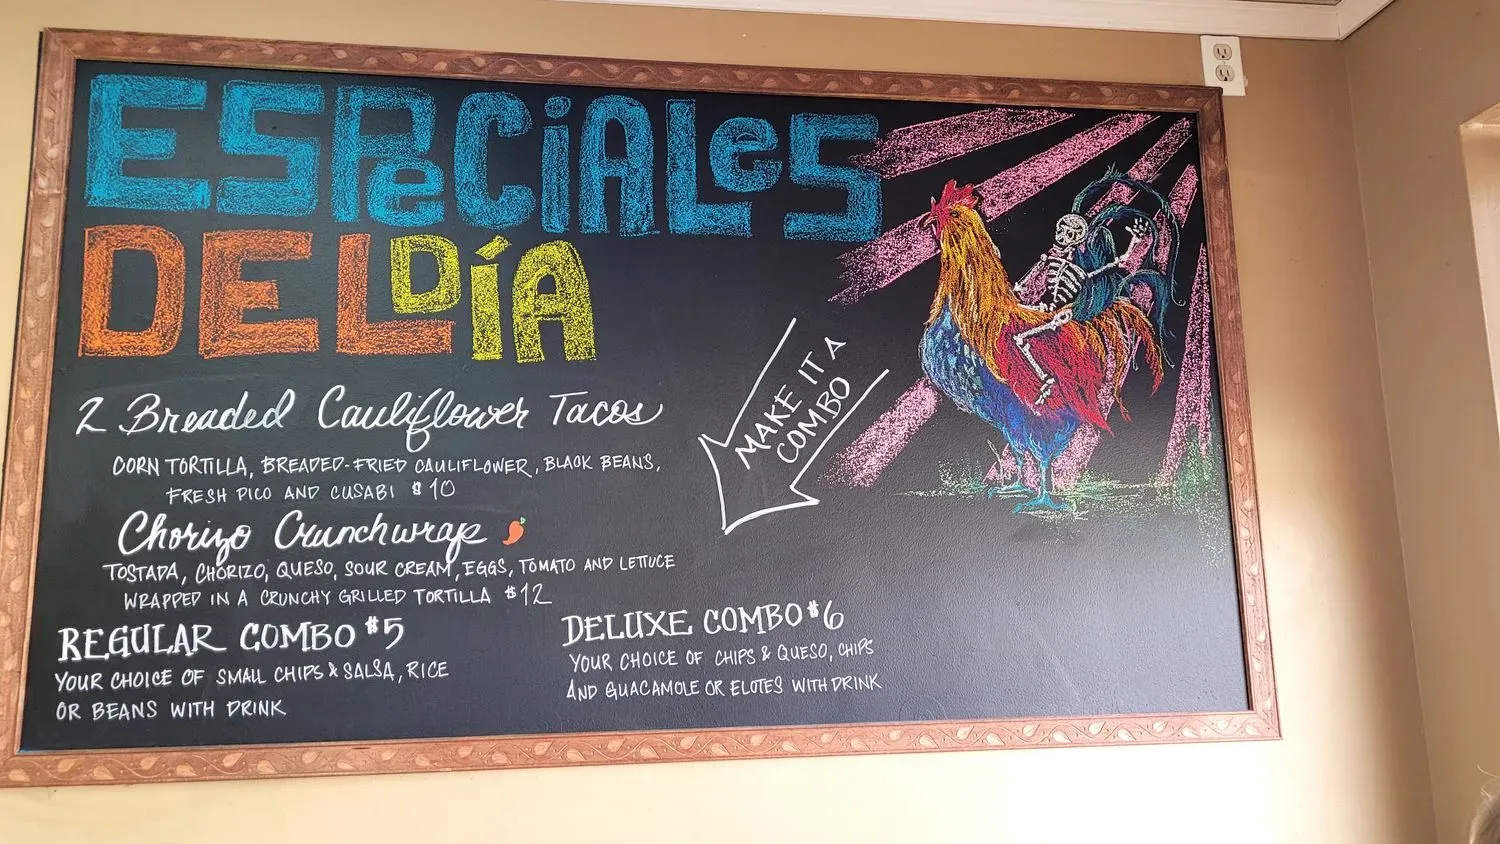 ESPeCiALeS
DEL DÍA
2 Breaded Cauliflower Tacos
CORN TORTILLA, BREADED-FRIED CAULIFLOWER, BLACK BEANS,
FRESH PICO AND CUSABI $10
Chorizo Crunchwrap
TOSTADA, CHORIZO, QUESO, SOUR CREAM, EGGS, TOMATO AND LETTUCE
WRAPPED IN A CRUNCHY GRILLED TORTILLA $12
MAKE IT A
COMBO
REGULAR COMBO $5
YOUR CHOICE OF SMALL CHIPS & SALSA, RICE
OR BEANS WITH DRINK
DELUXE COMBO $6
YOUR CHOICE OF CHIPS & QUESO, CHIPS
AND GUACAMOLE OR ELOTES WITH DRINK